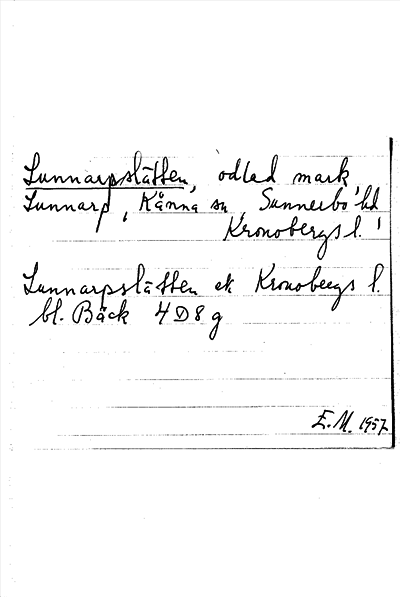 Lunnarpslätten, odlad mark,
Lunnarp, Känna sn, Sunnerbo hd
Kronobergs l.
Lunnarpslätten ek Kronobergs l.
bl. Bäck 4 D 8 g
E.M. 1957